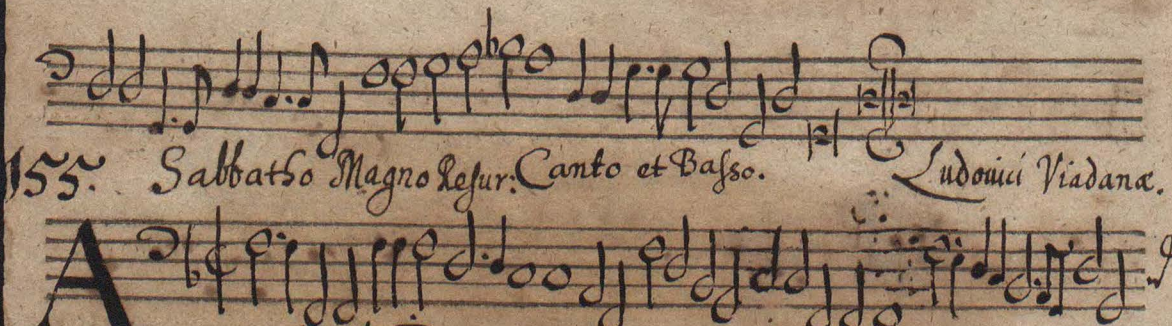 155. Sabbatho Magno Resur: Canto et Basso. Ludouici Viadanæ.
A